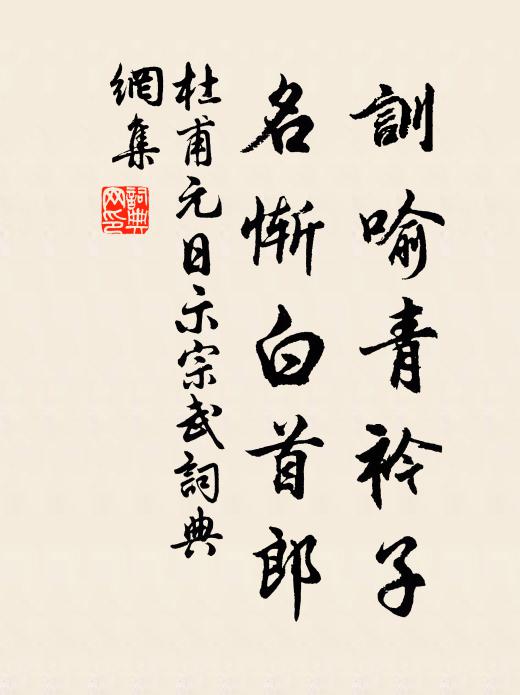 訓喻青衿子
名慚白首郎
杜甫元日示宗武詞典
網集
詞典網印